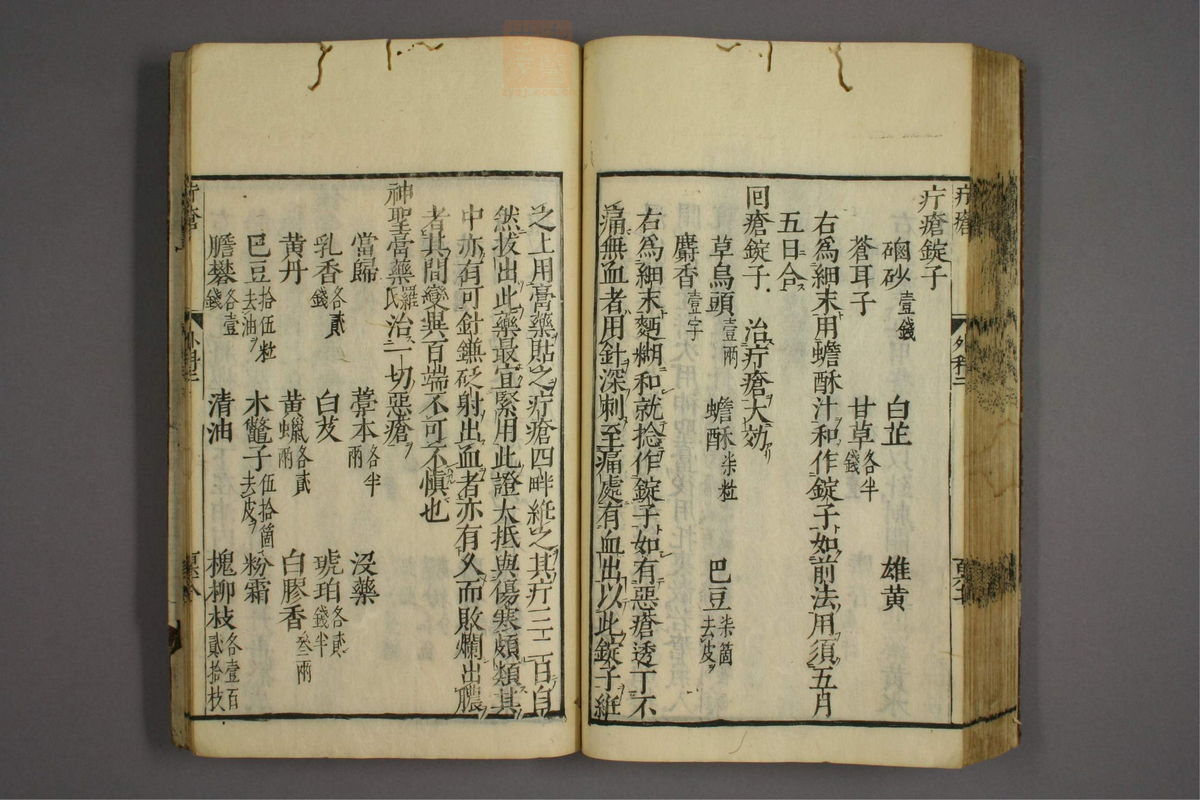 疔瘡錠子
硇砂壹錢 白芷 雄黄
蒼耳子 甘草各半錢
右爲細末用蟾酥汁和作錠子如前法用須五月
五日合
回瘡錠子 治疔瘡大効
草烏頭壹兩 蟾酥柒粒 巴豆柒箇去皮
麝香壹字
右爲細末麪糊和就捻作錠子如有惡瘡透丁不
痛無血者用針深刺至痛處有血出以此錠子紝
之上用膏藥貼之疔瘡四畔紝之其疔三二日自
然拔出此藥最宜緊用此證大抵與傷寒頗類其
中亦有可針鎌砭射出血者亦有久而敗爛出膿
者其間變異百端不可不愼也
神聖膏藥羅氏 治一切惡瘡
當歸 藁本各半兩 沒藥
乳香各貳錢 白芨 琥珀各貳錢半
黄丹 黄蠟各貳兩 白膠香叁兩
巴豆拾伍粒去油 木鼈子伍拾箇去皮 粉霜
膽礬各壹錢 清油 槐柳枝各壹百貳拾枝
疔瘡 外科二